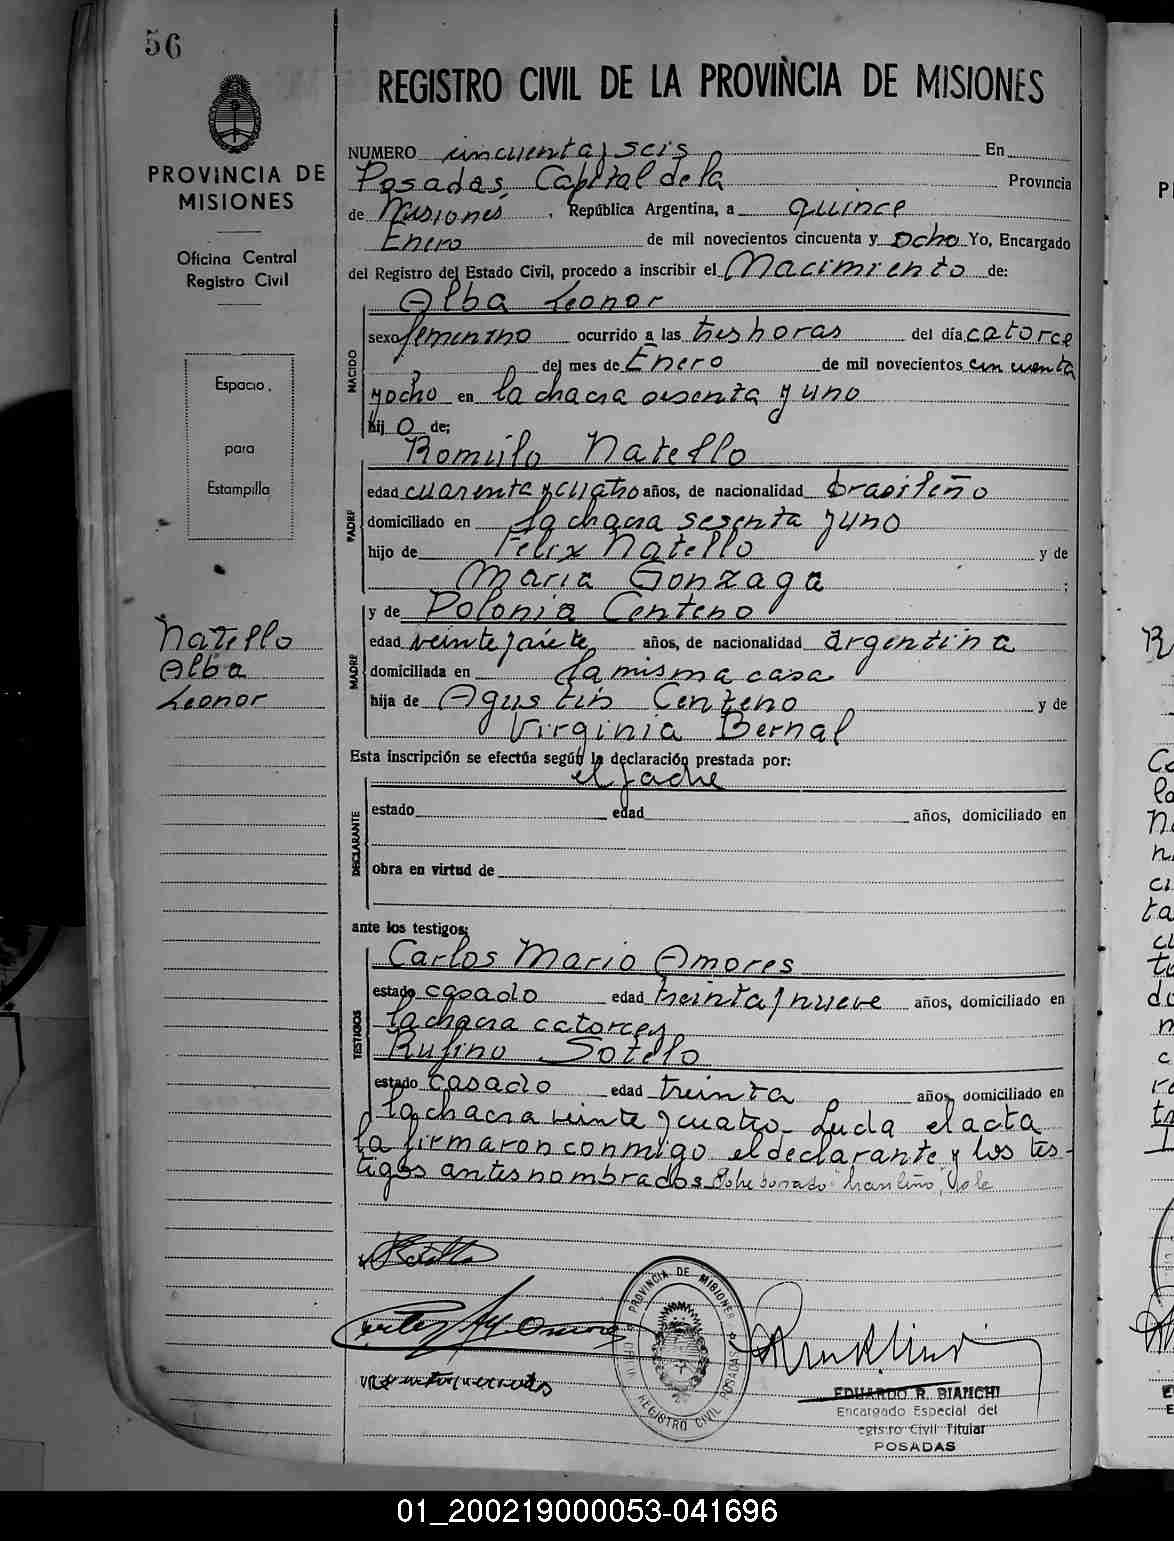 56
PROVINCIA DE
MISIONES
Oficina Central
Registro Civil
Espacio
para
Estampilla
Natello
Alba
Leonor
REGISTRO CIVIL DE LA PROVINCIA DE MISIONES
NUMERO cincuenta y seis En
Posadas Capital de la Provincia
de Misiones, República Argentina, a quince
Enero de mil novecientos cincuenta y ocho Yo, Encargado
del Registro del Estado Civil, procedo a inscribir el Nacimiento de:
Alba Leonor
NACIDO
sexo femenino ocurrido a las tres horas del día catorce
del mes de Enero de mil novecientos cincuenta
y ocho en la chacra sesenta y uno
hij a de;
Romulo Natello
PADRE
edad cuarenta y cuatro años, de nacionalidad brasileño
domiciliado en la chacra sesenta y uno
hijo de Felix Natello y de
Maria Gonzaga ;
y de Polonia Centeno
MADRE
edad veinte y siete años, de nacionalidad argentina
domiciliada en la misma casa
hija de Agustin Centeno y de
Virginia Bernal
Esta inscripción se efectúa según la declaración prestada por:
el padre
DECLARANTE
estado edad años, domiciliado en
obra en virtud de
ante los testigos:
Carlos Mario Amores
TESTIGOS
estado casado edad treinta y nueve años, domiciliado en
la chacra catorce y
Rufino Sotelo
estado casado edad treinta años, domiciliado en
la chacra veinte y cuatro- Leida el acta
la firmaron conmigo el declarante y los tes-
tigos antes nombrados Sobre borrado: brasileño, Vale
PROVINCIA DE MISIONES
REGISTRO CIVIL
POSADAS
EDUARDO R. BIANCHI
Encargado Especial del
egistro Civil Titular
POSADAS
01_200219000053-041696